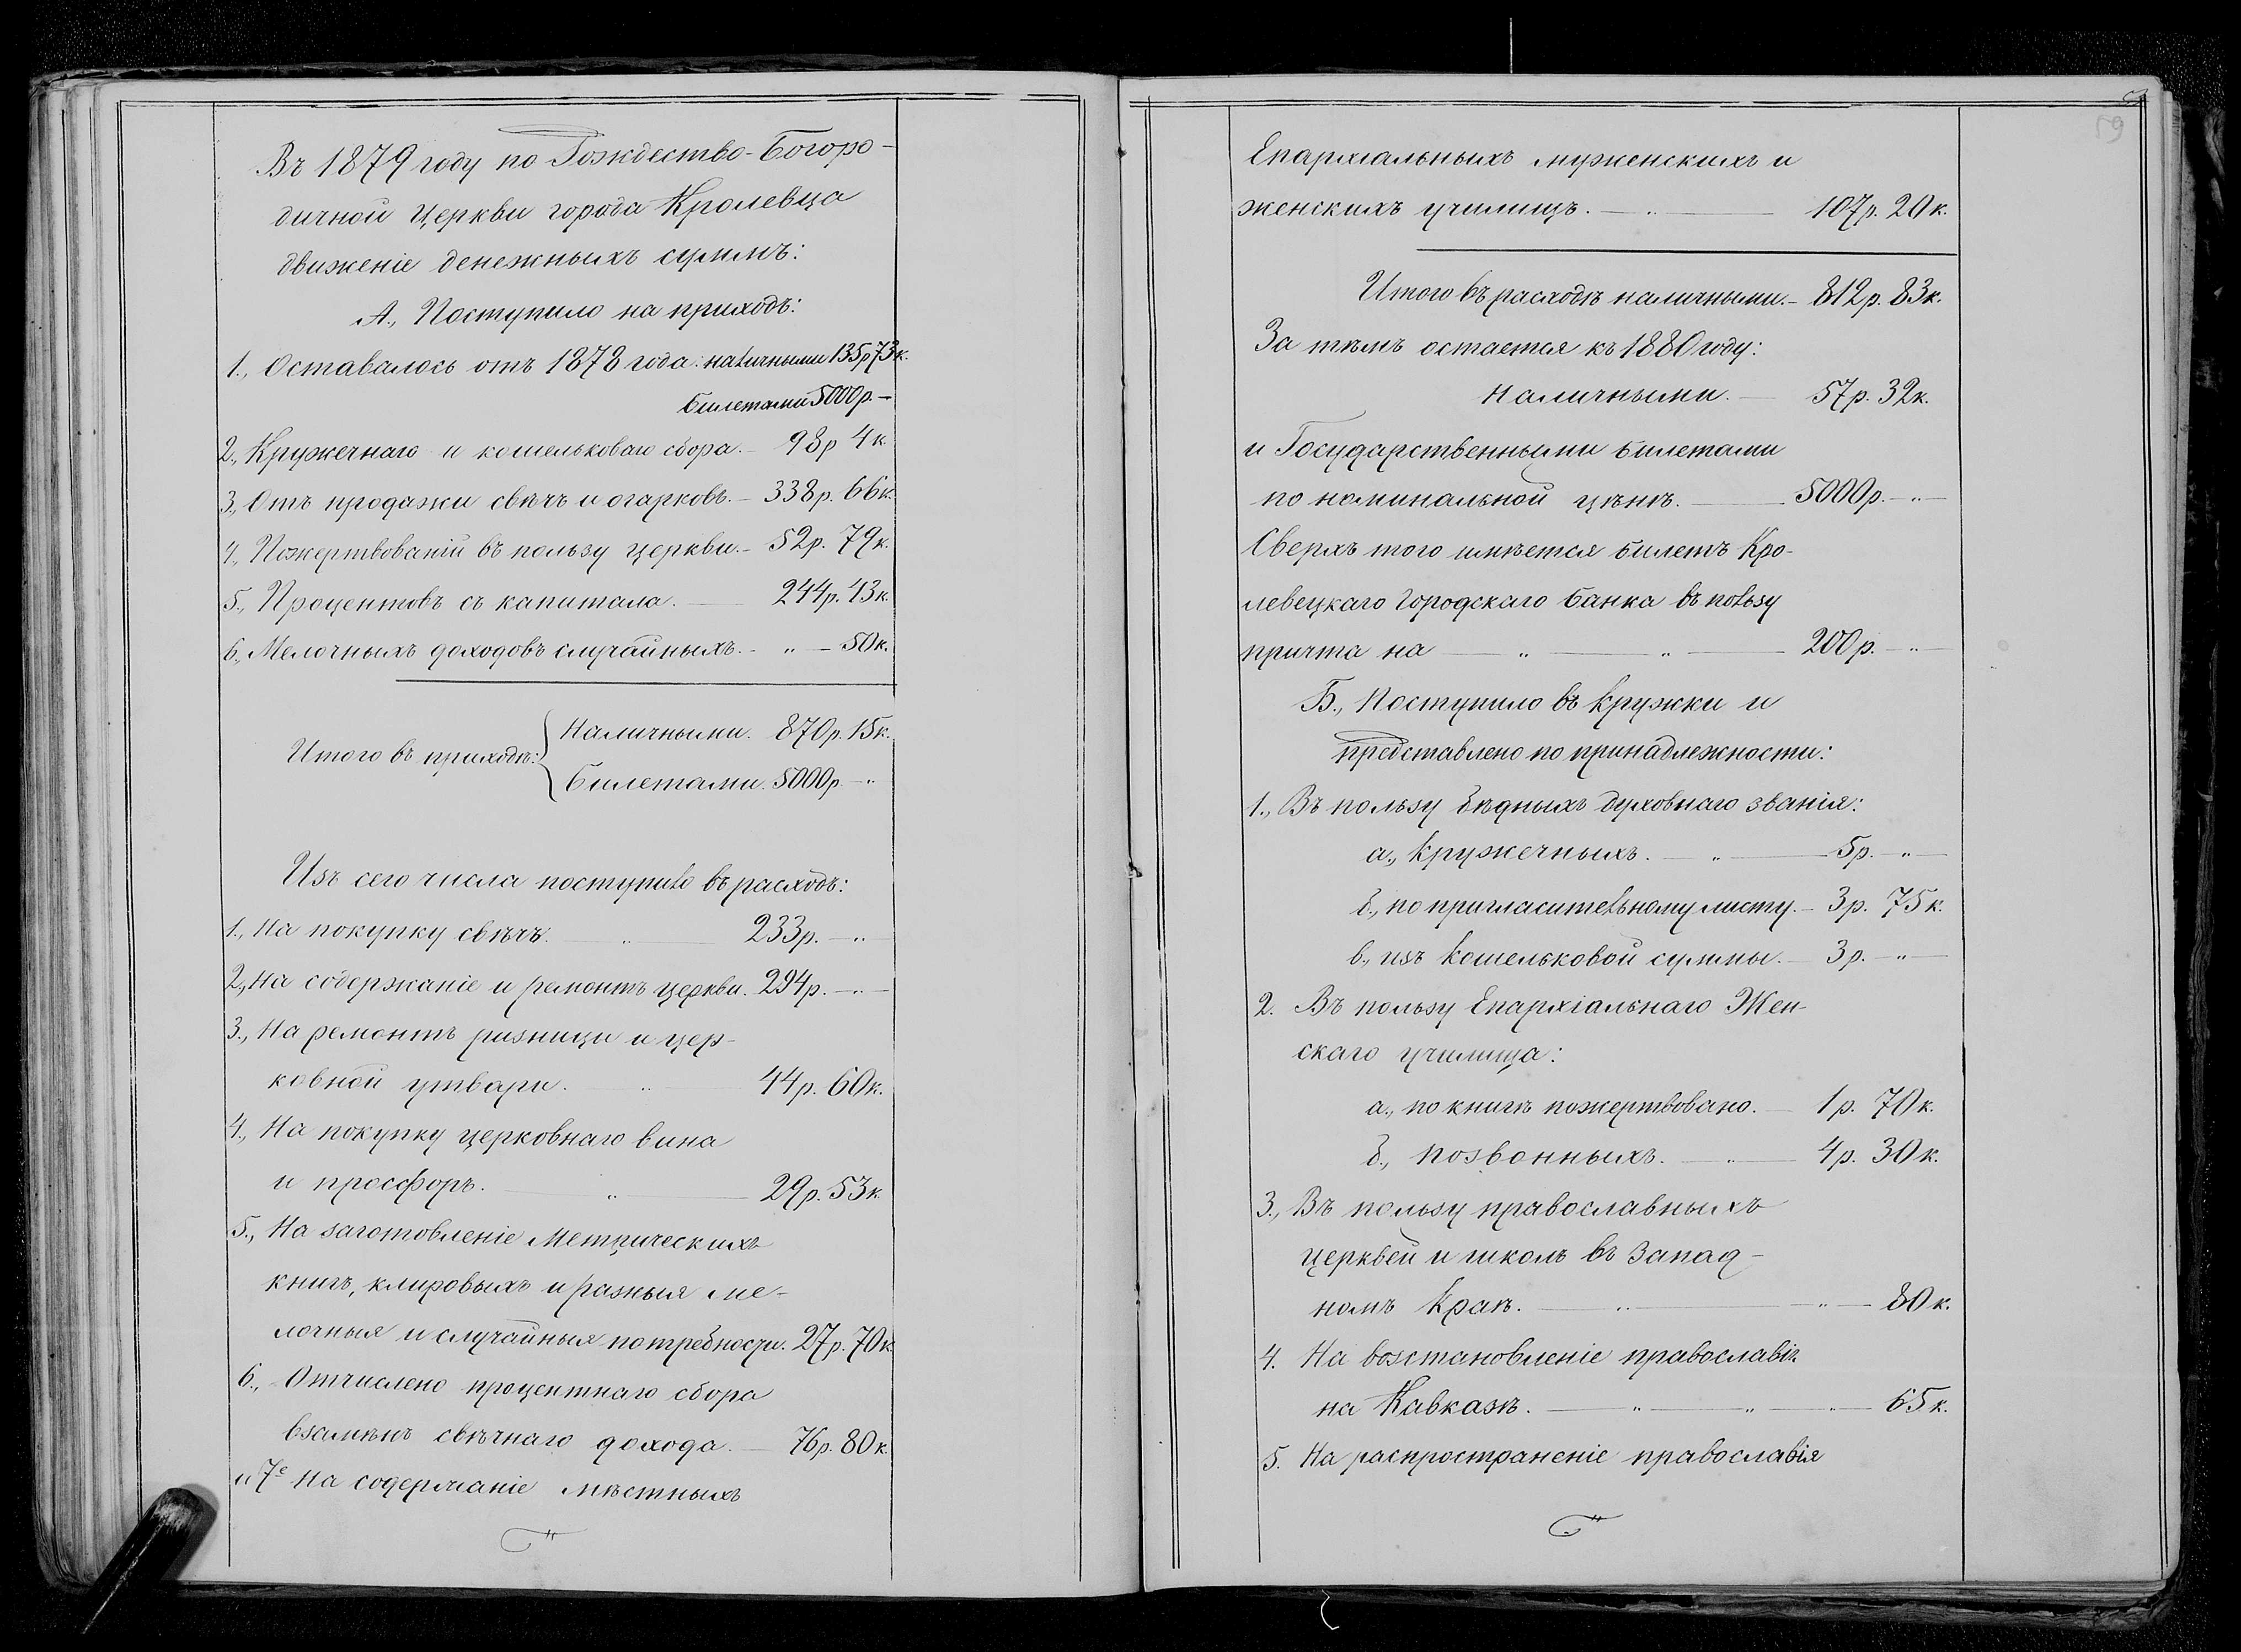 Въ 1879 году по Рождество-Богоро-
дичной Церкви города Кролевца
движеніе денежныхъ суммъ:
А., Поступило на приходъ:
1., Оставалось отъ 1878 года: наличными 135р 73к.
билетами 5000р. —
2., Кружечнаго и кошельковаго сбора. — 98р 4к.
3., Отъ продажи свѣчъ и огарковъ. — 338р. 66к.
4., Пожертвованій въ пользу церкви. — 52р. 79к.
5., Процентовъ съ капитала. — 244р. 43к.
6., Мелочныхъ доходовъ случайныхъ. — „ — 50к.
Итого въ приходѣ:
Наличными. 870р. 15к.
Билетами. 5000р. — „
Изъ сего числа поступило въ расходъ:
1., На покупку свѣчъ. „ — 233р. — „ —
2., На содержаніе и ремонтъ церкви. 294р. — „ —
3., На ремонтъ ризницы и цер-
ковной утвари. „ — 44р. 60к.
4., На покупку церковнаго вина
и просфоръ. — „ — 29р. 53к.
5., На заготовленіе Метрическихъ
книгъ, клировыхъ и разныя ме-
лочныя и случайныя потребности. 27р. 70к.
6., Отчислено процентнаго сбора
взамѣнъ свѣчнаго дохода. — 76р. 80к.
и 7е На содержаніе мѣстныхъ
59
Епархіальныхъ мужескихъ и
женскихъ училищъ. — „ — 107р. 20к.
Итого въ расходѣ наличными. — 812р. 83к.
За тѣмъ остается къ 1880 году:
Наличными. — 57р. 32к.
и Государственными билетами
по номинальной цѣнѣ. — 5000р. — „ —
Сверхъ того имѣется билетъ Кро-
левецкаго Городскаго банка въ пользу
причта на — „ — „ — 200р. — „ —
Б., Поступило въ кружки и
представлено по принадлежности:
1., Въ пользу бѣдныхъ духовнаго званія:
а., кружечныхъ. — „ — 5р. — „ —
б., по пригласительному листу. — 3р. 75к.
в., изъ кошельковой суммы. — 3р. — „ —
2. Въ пользу Епархіальнаго Жен-
скаго училища:
а., по книгѣ пожертвовано. — 1р. 70к.
б., позвонныхъ. — „ — 4р. 30к.
3., Въ пользу православныхъ
церквей и школъ въ Запад-
номъ Краѣ. — „ — „ — 80к.
4. На возстановленіе православія
на Кавказѣ. — „ — „ — „ — 65к.
5. На распространеніе православія